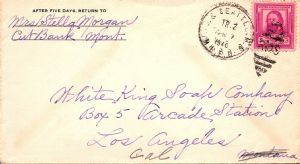 AFTER FIVE DAYS, RETURN TO
Mrs Stella Morgan
Cut Bank Mont.
SEATTLE
TR. 2
1940
White King Soap Company
Box 5 Arcade Station
Los Angeles
Cal Montana